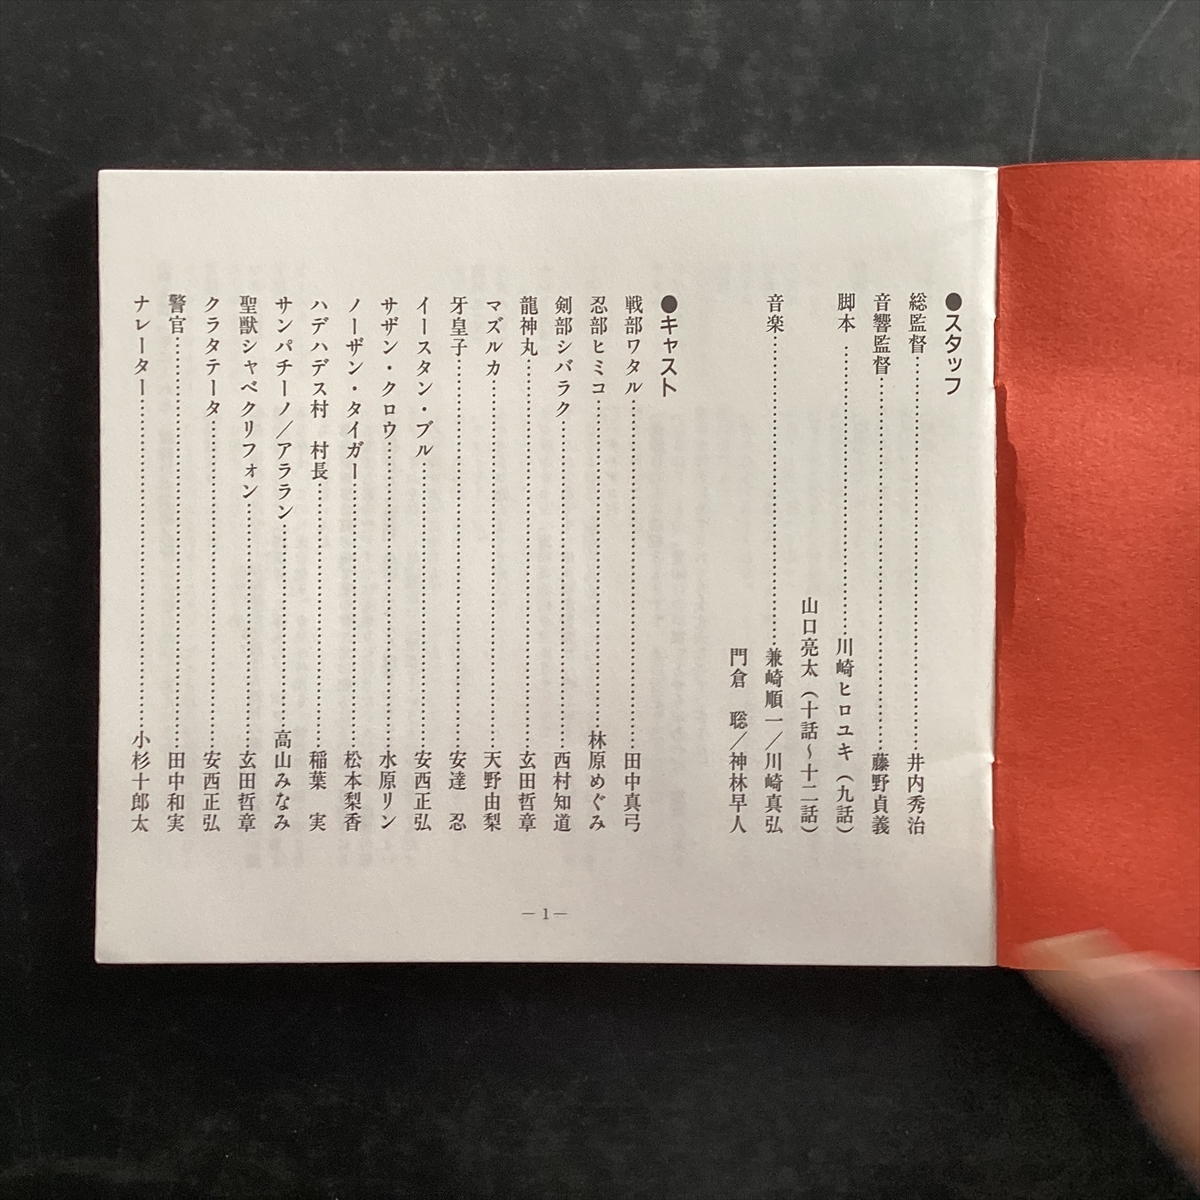 ●スタッフ
総監督……………………………井内秀治
音響監督…………………………藤野貞義
脚本……………………川崎ヒロユキ（九話）
山口亮太（十話〜十二話）
音楽……………………兼崎順一／川崎真弘
門倉　聡／神林早人
●キャスト
戦部ワタル………………………田中真弓
忍部ヒミコ………………………林原めぐみ
剣部シバラク……………………西村知道
龍神丸……………………………玄田哲章
マズルカ…………………………天野由梨
牙皇子……………………………安達　忍
イースタン・ブル………………安西正弘
サザン・クロウ…………………水原リン
ノーザン・タイガー……………松本梨香
ハデハデス村　村長……………稲葉　実
サンパチーノ／アララン………高山みなみ
聖獣シャベクリフォン…………玄田哲章
クラタテータ……………………安西正弘
警官………………………………田中和実
ナレーター………………………小杉十郎太
－1－